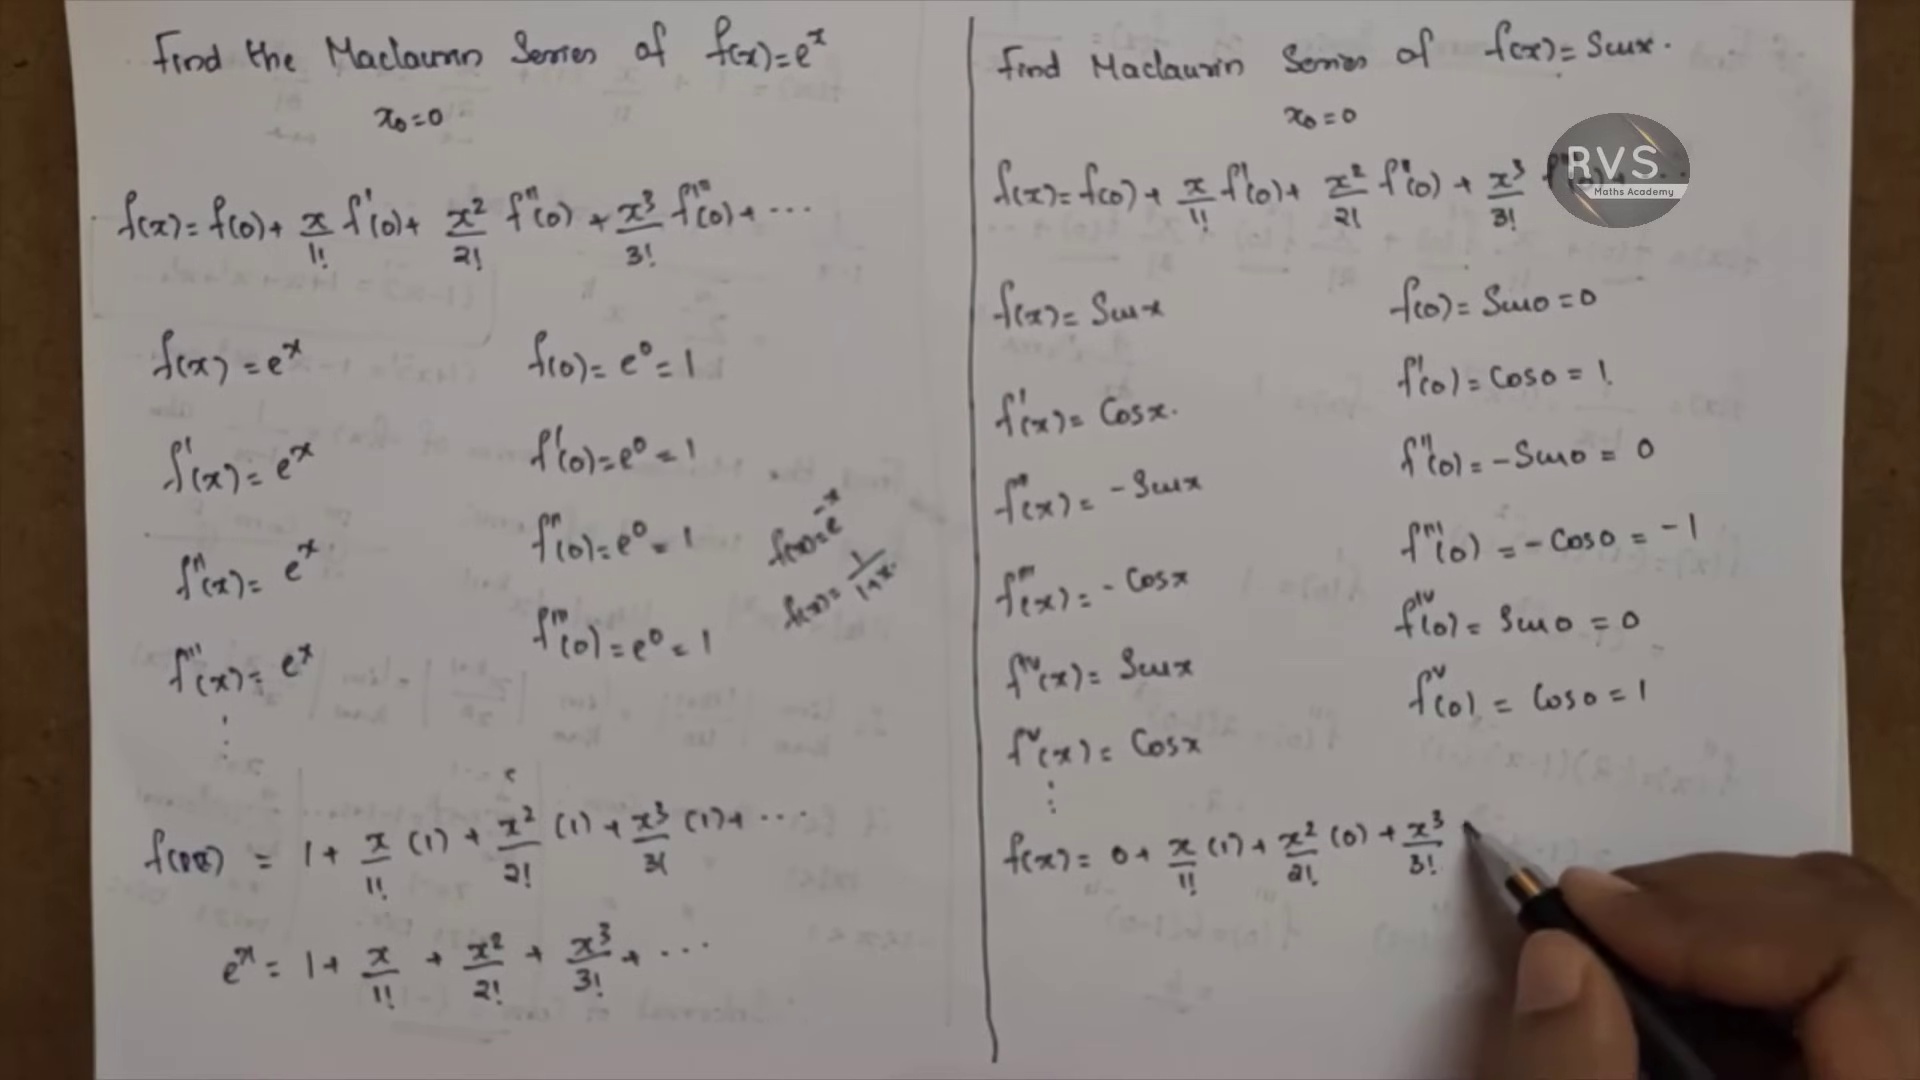 Find the Maclaurin Series of f(x)=e^x
x₀=0
f(x)= f(0)+ x/1! f'(0)+ x²/2! f''(0) + x³/3! f'''(0)+ ...
f(x) = e^x
f(0)= e⁰= 1
f'(x)= e^x
f'(0)=e⁰=1
f''(x)= e^x
f''(0)=e⁰=1
f'''(x)= e^x
f'''(0)=e⁰=1
⋮
f(x)=e^-x
f(x)= 1/1+x.
= 1+ x/1! (1) + x²/2! (1)+ x³/3! (1)+ ...
e^x = 1+ x/1! + x²/2! + x³/3! + ...
Find Maclaurin Series of f(x)= Sinx.
x₀=0
RVS
Maths Academy
f(x)= f(0)+ x/1! f'(0)+ x²/2! f''(0) + x³/3!
f(x)= Sinx
f(0)= Sin0=0
f'(x)= Cosx.
f'(0)= Cos0 = 1.
f''(x)= -Sinx
f''(0)= -Sin0 = 0
f'''(x)= -Cosx
f'''(0) = -Cos0 = -1
f^IV(x)= Sinx
f^IV(0)= Sin0 = 0
f^V(x)= Cosx
f^V(0) = Cos0 = 1
⋮
f(x)= 0+ x/1! (1)+ x²/2! (0)+ x³/3!